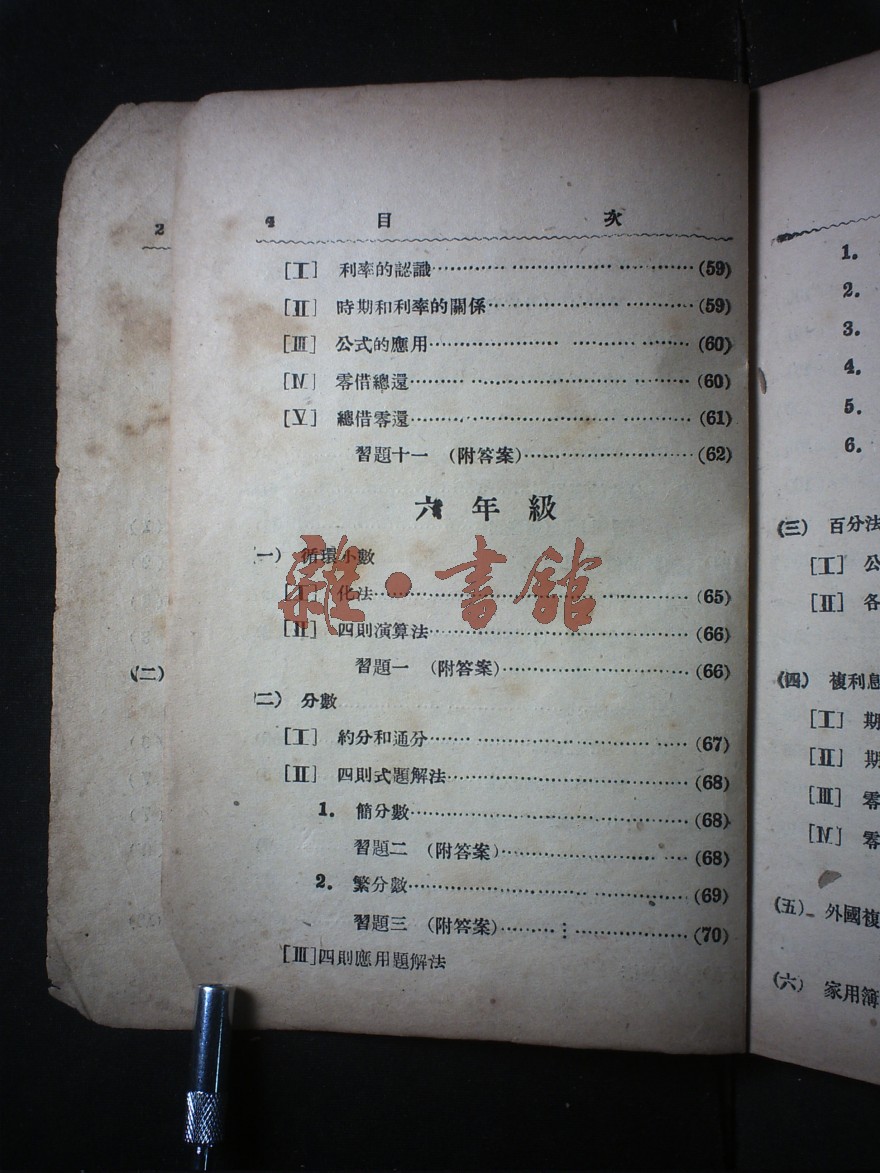 4 目 次
[I] 利率的認識……………………………(59)
[II] 時期和利率的關係……………………(59)
[III] 公式的應用……………………………(60)
[IV] 零借總還………………………………(60)
[V] 總借零還………………………………(61)
習題十一 (附答案)……………………(62)
六年級
(一) 循環小數
[I] 化法……………………………………(65)
[II] 四則演算法……………………………(66)
習題一 (附答案)………………………(66)
(二) 分數
[I] 約分和通分……………………………(67)
[II] 四則式題解法…………………………(68)
1. 簡分數…………………………………(68)
習題二 (附答案)………………………(68)
2. 繁分數…………………………………(69)
習題三 (附答案)………………………(70)
[III]四則應用題解法
雜·書館
2
(二)
1.
2.
3.
4.
5.
6.
(三) 百分法
[I] 公
[II] 各
(四) 複利息
[I] 期
[II] 期
[III] 零
[IV] 零
(五) 外國複
(六) 家用簿